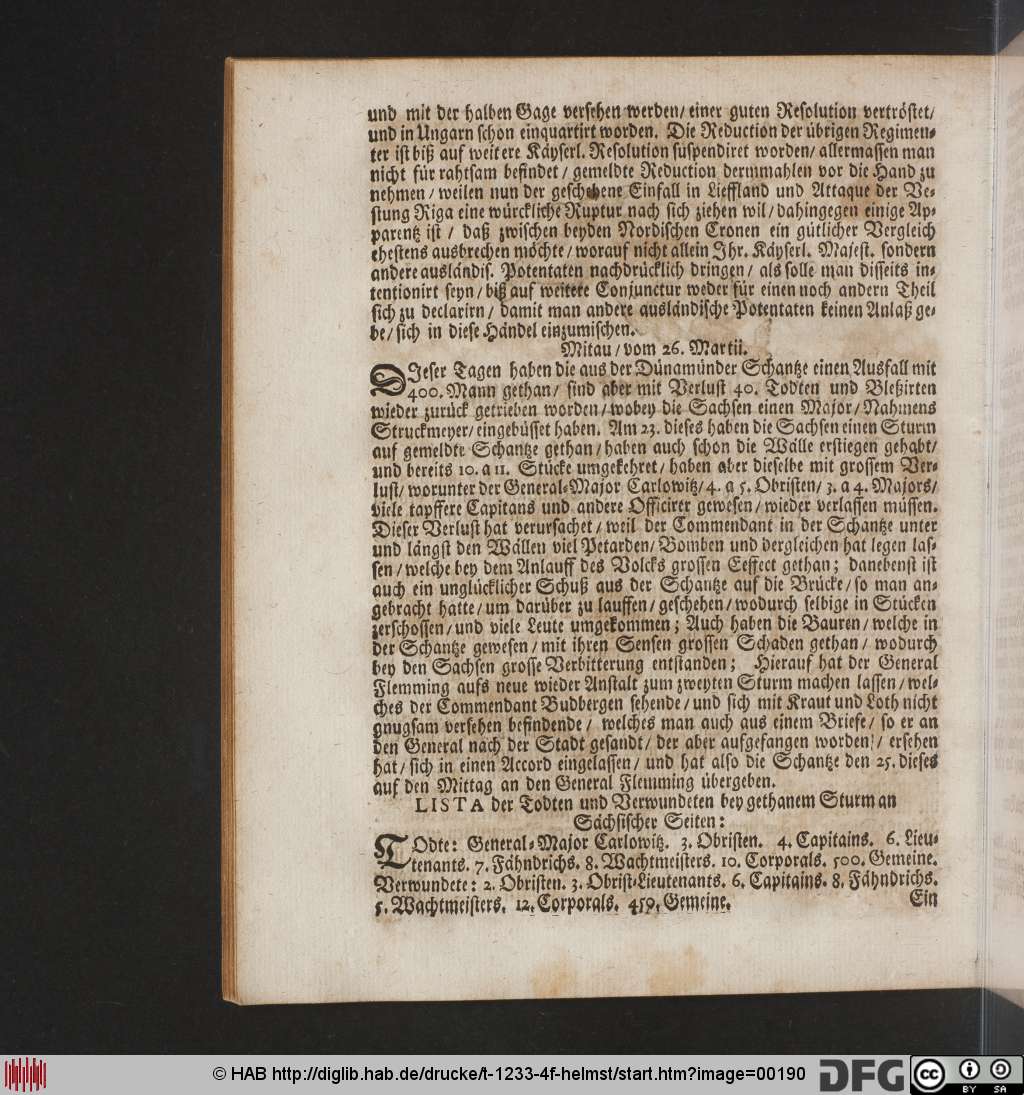 und mit der halben Gage versehen werden/ einer guten Resolution vertröstet/
und in Ungarn schon einquartirt worden. Die Reduction der übrigen Regimen-
ter ist biß auf weitere Käyserl. Resolution suspendiret worden/ allermassen man
nicht für rahtsam befindet/ gemeldte Reduction dermmahlen vor die Hand zu
nehmen/ weilen nun der geschehene Einfall in Lieffland und Attaque der Ve-
stung Riga eine würckliche Ruptur nach sich ziehen wil/ dahingegen einige Ap-
parentz ist/ daß zwischen beyden Nordischen Cronen ein gütlicher Vergleich
ehestens ausbrechen möchte/ worauf nicht allein Ihr. Käyserl. Majest. sondern
andere ausländis. Potentaten nachdrücklich dringen/ als solle man disseits in-
tentionirt seyn/ biß auf weitere Conjunctur weder für einen noch andern Theil
sich zu declarirn/ damit man andere ausländische Potentaten keinen Anlaß ge-
be/ sich in diese Händel einzumischen.
Mitau/ vom 26. Martii.
DIeser Tagen haben die aus der Dünamünder Schantze einen Ausfall mit
400. Mann gethan/ sind aber mit Verlust 40. Todten und Bleßirten
wieder zurück getrieben worden/ wobey die Sachsen einen Major/ Nahmens
Struckmeyer/ eingebüsset haben. Am 23. dieses haben die Sachsen einen Sturm
auf gemeldte Schantze gethan/ haben auch schon die Wälle erstiegen gehabt/
und bereits 10. a 11. Stücke umgekehret/ haben aber dieselbe mit grossem Ver-
lust/ worunter der General-Major Carlowitz/ 4. a 5. Obristen/ 3. a 4. Majors/
viele tapffere Capitans und andere Officirer gewesen/ wieder verlassen müssen.
Dieser Verlust hat verursachet/ weil der Commendant in der Schantze unter
und längst den Wällen viel Petarden/ Bomben und dergleichen hat legen las-
sen/ welche bey dem Anlauff des Volcks grossen Eeffect gethan; danebenst ist
auch ein unglücklicher Schuß aus der Schantze auf die Brücke/ so man an-
gebracht hatte/ um darüber zu lauffen/ geschehen/ wodurch selbige in Stücken
zerschossen/ und viele Leute umgekommen; Auch haben die Bauren/ welche in
der Schantze gewesen/ mit ihren Sensen grossen Schaden gethan/ wodurch
bey den Sachsen grosse Verbitterung entstanden; Hierauf hat der General
Flemming aufs neue wieder Anstalt zum zweyten Sturm machen lassen/ wel-
ches der Commendant Budbergen sehende/ und sich mit Kraut und Loth nicht
gnugsam versehen befindende/ welches man auch aus einem Briefe/ so er an
den General nach der Stadt gesandt/ der aber aufgefangen worden/ ersehen
hat/ sich in einen Accord eingelassen/ und hat also die Schantze den 25. dieses
auf den Mittag an den General Flemming übergeben.
LISTA der Todten und Verwundeten bey gethanem Sturm an
Sächsischer Seiten:
TOdte: General-Major Carlowitz. 3. Obristen. 4. Capitains. 6. Lieu-
tenants. 7. Fähndrichs. 8. Wachtmeisters. 10. Corporals. 500. Gemeine.
Verwundete: 2. Obristen. 3. Obrist-Lieutenants. 6. Capitains. 8. Fähndrichs.
5. Wachtmeisters. 12. Corporals. 459. Gemeine.
Ein
© HAB http://diglib.hab.de/drucke/t-1233-4f-helmst/start.htm?image=00190
DFG
cc BY SA